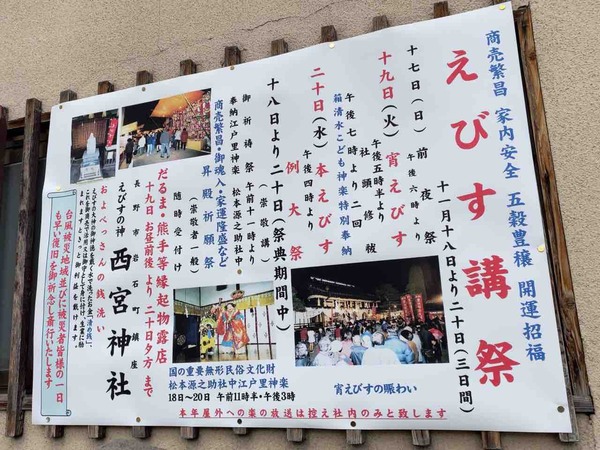 商売繁昌 家内安全 五穀豊穣 開運招福
えびす講祭
十一月十八日より二十日(三日間)
十七日(日) 前夜祭
午後六時より
十九日(火) 宵えびす
午後五時半より
社頭修祓
午後七時より二回
箱清水こども神楽特別奉納
二十日(水) 本えびす
午後四時より
例大祭
十八日より二十日(祭典期間中)
御祈祷祭 (崇敬講)
午前十一時より
奉納江戸里神楽 松本源之助社中
商売繁昌・御魂入・家運隆盛など
昇殿祈願祭
(崇敬者・一般)
随時受付け
だるま・熊手等縁起物露店
十九日 お昼前後より 二十日夕方まで
長野市岩石町鎮座
えびすの神 西宮神社
およべっさんの銭洗い
台風被災地域並びに被災者皆様の一日
も早い復旧を御祈念し斎行いたします
国の重要無形民俗文化財
松本源之助社中江戸里神楽
18日〜20日 午前11時半・午後3時
宵えびすの賑わい
本年屋外への楽の放送は控え社内のみと致します